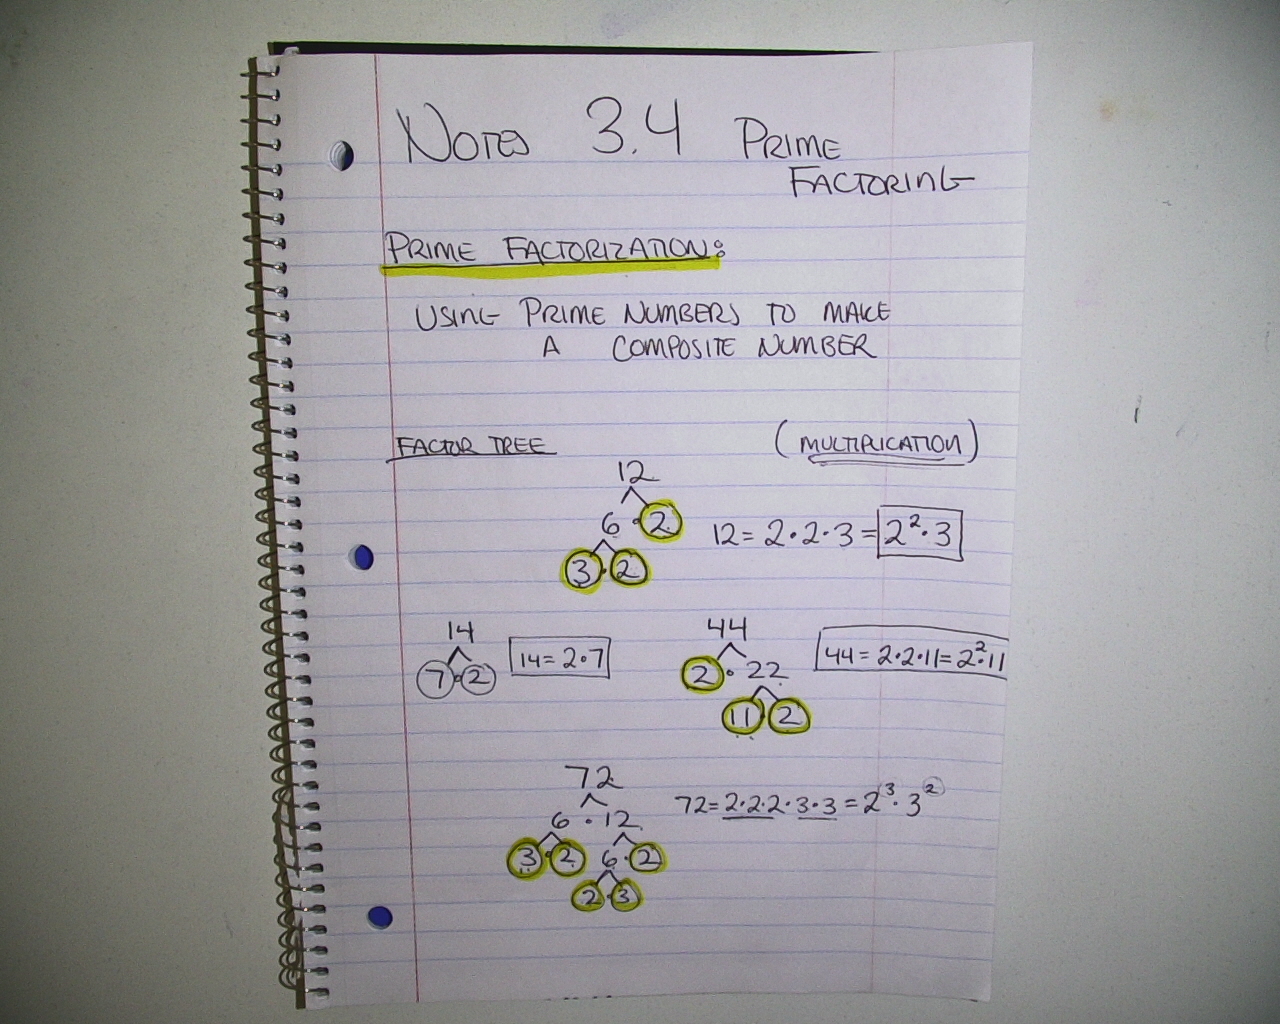 NOTES 3.4 PRIME
FACTORING
PRIME FACTORIZATION:
USING PRIME NUMBERS TO MAKE
A COMPOSITE NUMBER
FACTOR TREE (MULTIPLICATION)
12
6 · 2
3 · 2
12 = 2·2·3 = 2²·3
14
7 · 2
14 = 2·7
44
2 · 22
11 · 2
44 = 2·2·11 = 2²·11
72
6 · 12
3 · 2 6 · 2
2 · 3
72 = 2·2·2·3·3 = 2³·3²